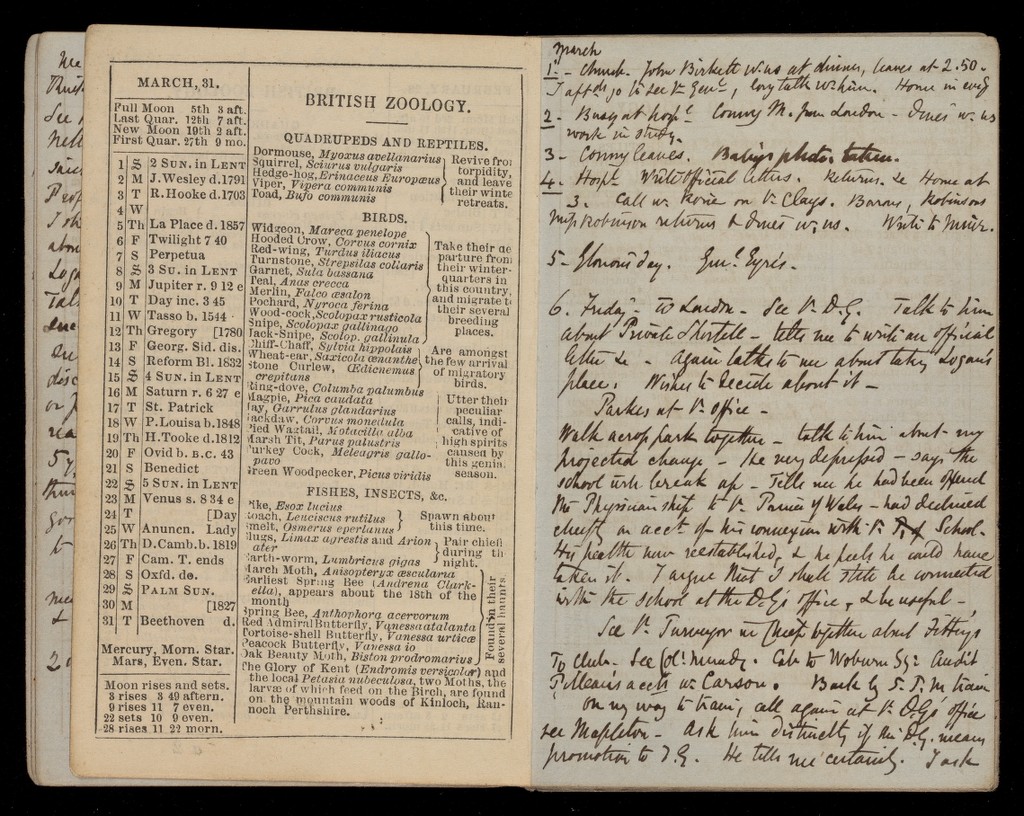 MARCH, 31.
Full Moon 5th 3 aft.
Last Quar. 12th 7 aft.
New Moon 19th 2 aft.
First Quar. 27th 9 mo.
1 S 2 SUN. in LENT
2 M J. Wesley d. 1791
3 T R. Hooke d. 1703
4 W
5 Th La Place d. 1857
6 F Twilight 7 40
7 S Perpetua
8 S 3 SU. in LENT
9 M Jupiter r. 9 12 e
10 T Day inc. 3 45
11 W Tasso b. 1544
12 Th Gregory [1780
13 F Georg. Sid. dis.
14 S Reform Bl. 1832
15 S 4 SUN. in LENT
16 M Saturn r. 6 27 e
17 T St. Patrick
18 W P. Louisa b. 1848
19 Th H. Tooke d. 1812
20 F Ovid b. B.C. 43
21 S Benedict
22 S 5 SUN. in LENT
23 M Venus s. 8 34 e
24 T [Day
25 W Anuncn. Lady
26 Th D. Camb. b. 1819
27 F Cam. T. ends
28 S Oxfd. do.
29 S PALM SUN.
30 M [1827
31 T Beethoven d.
Mercury, Morn. Star.
Mars, Even. Star.
Moon rises and sets.
3 rises 3 49 aftern.
9 rises 11 7 even.
22 sets 10 9 even.
28 rises 11 22 morn.
BRITISH ZOOLOGY.
QUADRUPEDS AND REPTILES.
Dormouse, Myoxus avellanarius
Squirrel, Sciurus vulgaris
Hedge-hog, Erinaceus Europæus
Viper, Vipera communis
Toad, Bufo communis
Revive from
torpidity,
and leave
their winte
retreats.
BIRDS.
Widgeon, Mareca penelope
Hooded Crow, Corvus cornix
Red-wing, Turdus iliacus
Turnstone, Strepsilas coliaris
Garnet, Sula bassana
Teal, Anas crecca
Merlin, Falco æsalon
Pochard, Nyroca ferina
Wood-cock, Scolopax rusticola
Snipe, Scolopax gallinago
Jack-Snipe, Scolop. gallinula
Take their de
parture from
their winter-
quarters in
this country,
and migrate to
their several
breeding
places.
Chiff-Chaff, Sylvia hippolais
Wheat-ear, Saxicola œnanthe
Stone Curlew, Œdicnemus
crepitans
Are amongst
the few arrival
of migratory
birds.
Ring-dove, Columba palumbus
Magpie, Pica caudata
Jay, Garrulus glandarius
Jackdaw, Corvus monedula
Pied Wagtail, Motacilla alba
Marsh Tit, Parus palustris
Turkey Cock, Meleagris gallo-
pavo
Green Woodpecker, Picus viridis
Utter their
peculiar
calls, indi-
cative of
high spirits
caused by
this genial
season.
FISHES, INSECTS, &c.
Pike, Esox lucius
Roach, Leuciscus rutilus
Smelt, Osmerus eperlanus
Spawn about
this time.
Slugs, Limax agrestis and Arion
ater
Earth-worm, Lumbricus gigas
Pair chiefl
during th
night.
March Moth, Anisopteryx æscularia
Earliest Spring Bee (Andrena Clark-
ella), appears about the 18th of the
month
Spring Bee, Anthophora acervorum
Red Admiral Butterfly, Vanessa atalanta
Tortoise-shell Butterfly, Vanessa urticæ
Peacock Butterfly, Vanessa io
Oak Beauty Moth, Biston prodromarius
Found in their
several haunts.
The Glory of Kent (Endromis versicolor) and
the local Petasia nubeculosa, two Moths, the
larvæ of which feed on the Birch, are found
on the mountain woods of Kinloch, Ran-
noch Perthshire.
March
1. - Church. John Birkett w. us at dinner, leaves at 2.50.
I aftds go to see Genl, long talk w. him. Home in evg
2. Busy at hospl. Conny M. from London - dines w. us
work in study.
3 - Conny leaves. Baby's photo. taken.
4. Hospl. Write official letters. Returns. &c Home at
3. Call w. Rosie on Clays. Barrow, Robinsons
Miss Robinson returns & dines w. us. Write to Muir.
5 - Glorious day. Genl Eyres.
6. Friday - to London - See D.G. Talk to him
about Private Shortell - tells me to write an official
letter &c - Again talks to me about taking Logan's
place. Wishes to decide about it -
Parkes at office -
Walk across park together - talk to him about my
projected change - He very depressed - says the
school will break up - Tells me he had been offered
the Physicianship to Prince of Wales - had declined
chiefly on acct of his connexion with School.
His health now reestablished, & he feels he could have
taken it. I argue that I shall still be connected
with the school at the D.G's office, & be useful -
See Surveyor in Chief together about Fittings
To Club - See Col. Mundy. Cab to Woburn Sq. Audit
accts w. Carson. Back by 5. P.m train
on my way to train, call again at D.G's office
see Mapleton - ask him distinctly if the D.G. means
promotion to I.G. He tells me certainly. I ask